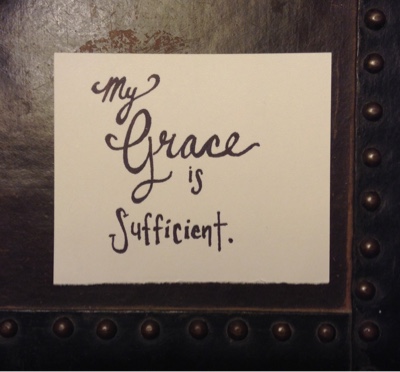 My
Grace
is
Sufficient.